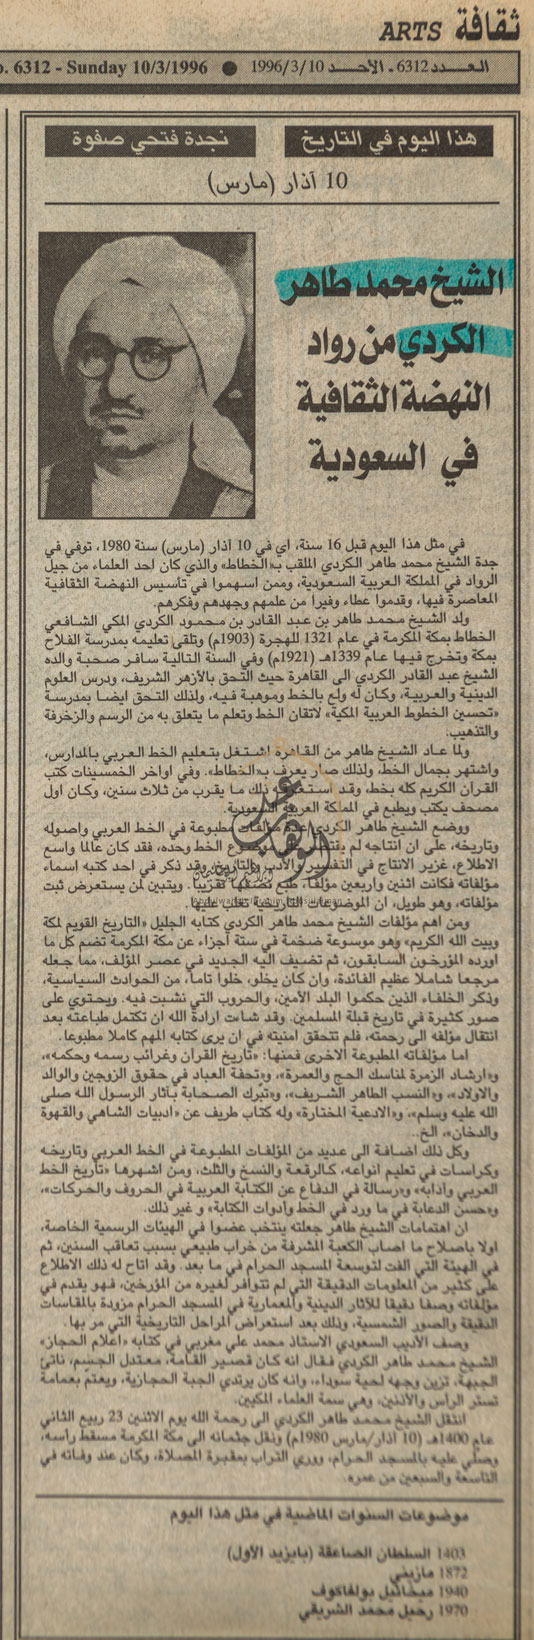 ثقافة ARTS
o. 6312 - Sunday 10/3/1996 ● العـــدد 6312 ـ الأحـــد 1996/3/10
هذا اليوم في التاريخ
نجدة فتحي صفوة
10 آذار (مارس)
الشيخ محمد طاهر
الكردي من رواد
النهضة الثقافية
في السعودية
في مثل هذا اليوم قبل 16 سنة، اي في 10 آذار (مارس) سنة 1980، توفي في
جدة الشيخ محمد طاهر الكردي الملقب بـ«الخطاط» والذي كان احد العلماء من جيل
الرواد في المملكة العربية السعودية، وممن اسهموا في تأسيس النهضة الثقافية
المعاصرة فيها، وقدموا عطاء وفيرا من علمهم وجهدهم وفكرهم.
ولد الشيخ محمد طاهر بن عبد القادر بن محمود الكردي المكي الشافعي
الخطاط بمكة المكرمة في عام 1321 للهجرة (1903م) وتلقى تعليمه بمدرسة الفلاح
بمكة وتخرج فيها عام 1339هـ (1921م) وفي السنة التالية سافر صحبة والده
الشيخ عبد القادر الكردي الى القاهرة حيث التحق بالأزهر الشريف، ودرس العلوم
الدينية والعربية، وكان له ولع بالخط وموهبة فيه، ولذلك التحق ايضا بمدرسة
«تحسين الخطوط العربية المكية» لاتقان الخط وتعلم ما يتعلق به من الرسم والزخرفة
والتذهيب.
ولما عاد الشيخ طاهر من القاهرة اشتغل بتعليم الخط العربي بالمدارس،
واشتهر بجمال الخط، ولذلك صار يعرف بـ«الخطاط». وفي اواخر الخمسينات كتب
القرآن الكريم كله بخط، وقد ذلك ما يقرب من ثلاث سنين، وكان اول
مصحف يكتب ويطبع في المملكة العربية السعودية.
ووضع الشيخ طاهر الكردي مؤلفات مطبوعة في الخط العربي واصوله
وتاريخه، على ان انتاجه لم يقتصر على موضوع الخط وحده، فقد كان عالما واسع
الاطلاع، غزير الانتاج في التفسير والأدب والتاريخ. وقد ذكر في احد كتبه اسماء
مؤلفاته فكانت اثنين واربعين مؤلفا، طبع نصفها تقريبا. ويتبين لمن يستعرض ثبت
مؤلفاته، وهو طويل، ان الموضوعات التاريخية تغلب عليها.
ومن اهم مؤلفات الشيخ محمد طاهر الكردي كتابه الجليل «التاريخ القويم لمكة
وبيت الله الكريم» وهو موسوعة ضخمة في ستة اجزاء عن مكة المكرمة تضم كل ما
اورده المؤرخون السابقون، ثم تضيف اليه الجديد في عصر المؤلف، مما جعله
مرجعا شاملا عظيم الفائدة، وان كان يخلو، خلوا تاما، من الحوادث السياسية،
وذكر الخلفاء الذين حكموا البلد الأمين، والحروب التي نشبت فيه. ويحتوي على
صور كثيرة في تاريخ قبلة المسلمين. وقد شاءت ارادة الله ان تكتمل طباعته بعد
انتقال مؤلفه الى رحمته، فلم تتحقق امنيته في ان يرى كتابه المهم كاملا مطبوعا.
اما مؤلفاته المطبوعة الاخرى فمنها: «تاريخ القرآن وغرائب رسمه وحكمه»،
و«ارشاد الزمرة لمناسك الحج والعمرة»، و«تحفة العباد في حقوق الزوجين والوالد
والاولاد»، و«النسب الطاهر الشريف»، و«تبرك الصحابة بآثار الرسول الله صلى
الله عليه وسلم»، و«الادعية المختارة» وله كتاب طريف عن «ادبيات الشاهي والقهوة
والدخان»، الخ..
وكل ذلك اضافة الى عديد من المؤلفات المطبوعة في الخط العربي وتاريخه
وكراسات في تعليم انواعه، كالرقعة والنسخ والثلث، ومن اشهرها «تاريخ الخط
العربي وآدابه» و«رسالة في الدفاع عن الكتابة العربية في الحروف والحركات»،
و«حسن الدعابة في ما ورد في الخط وأدوات الكتابة» و غير ذلك.
ان اهتمامات الشيخ طاهر جعلته ينتخب عضوا في الهيئات الرسمية الخاصة،
اولا باصلاح ما اصاب الكعبة المشرفة من خراب طبيعي بسبب تعاقب السنين، ثم
في الهيئة التي الفت لتوسعة المسجد الحرام في ما بعد. وقد اتاح له ذلك الاطلاع
على كثير من المعلومات الدقيقة التي لم تتوافر لغيره من المؤرخين، فهو يقدم في
مؤلفاته وصفا دقيقا للآثار الدينية والمعمارية في المسجد الحرام مزودة بالمقاسات
الدقيقة والصور الشمسية، وذلك بعد استعراض المراحل التاريخية التي مر بها.
وصف الأديب السعودي الاستاذ محمد علي مغربي في كتابه «اعلام الحجاز»
الشيخ محمد طاهر الكردي فقال انه كان قصير القامة، معتدل الجسم، ناتئ
الجبهة، تزين وجهه لحية سوداء، وانه كان يرتدي الجبة الحجازية، ويعتم بعمامة
تستر الرأس والأذنين، وهي سمة العلماء المكيين.
انتقل الشيخ محمد طاهر الكردي الى رحمة الله يوم الاثنين 23 ربيع الثاني
عام 1400هـ (10 آذار/مارس 1980م) ونقل جثمانه الى مكة المكرمة مسقط رأسه،
وصلي عليه بالمسجد الحرام، ووري التراب بمقبرة المصلاة، وكان عند وفاته في
التاسعة والسبعين من عمره.
موضوعات السنوات الماضية في مثل هذا اليوم
1403 السلطان الصاعقة (بايزيد الأول)
1872 مازيني
1940 ميخائيل بولغاكوف
1970 رحيل محمد الشريقي